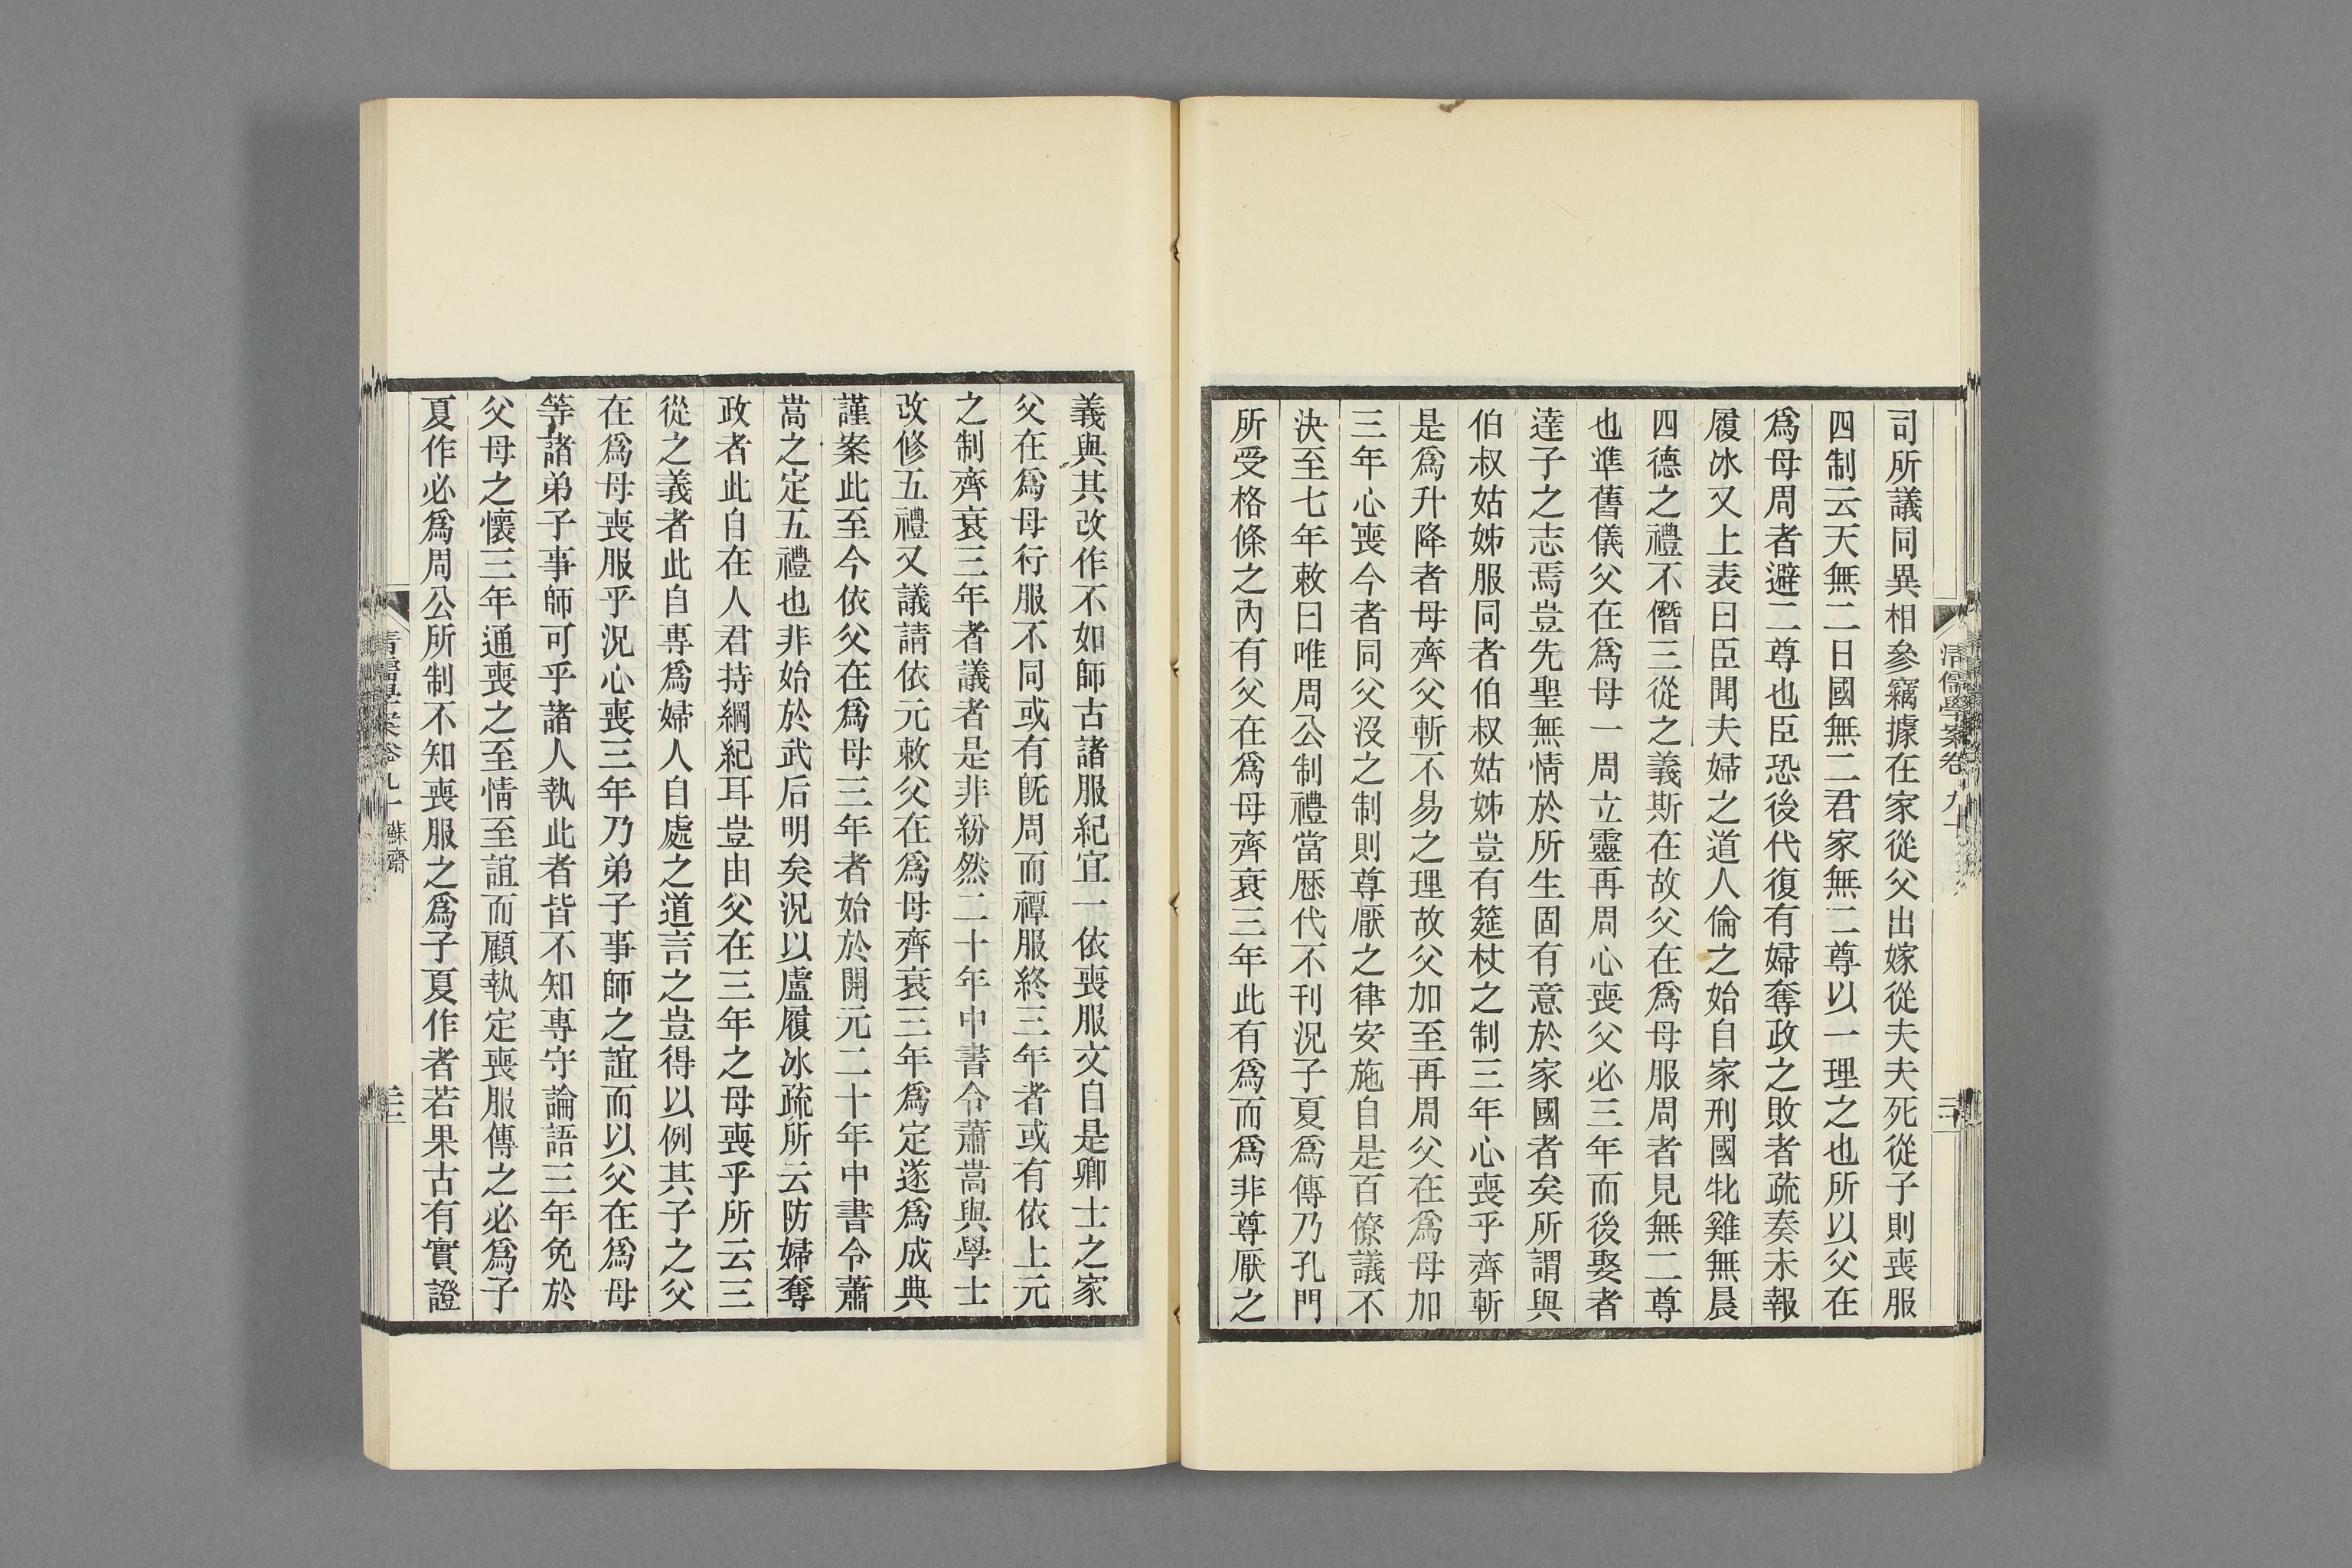 司所議同異相參竊據在家從父出嫁從夫夫死從子則喪服
四制云天無二日國無二君家無二尊以一理之也所以父在
爲母周者避二尊也臣恐後代復有婦奪政之敗者疏奏未報
履冰又上表曰臣聞夫婦之道人倫之始自家刑國牝雞無晨
四德之禮不僭三從之義斯在故父在爲母服周者見無二尊
也準舊儀父在爲母一周立靈再周心喪父必三年而後娶者
達子之志焉豈先聖無情於所生固有意於家國者矣所謂與
伯叔姑姊服同者伯叔姑姊豈有筵杖之制三年心喪乎齊斬
是爲升降者母齊父斬不易之理故父加至再周父在爲母加
三年心喪今者同父沒之制則尊厭之律安施自是百僚議不
決至七年敕曰唯周公制禮當歷代不刊況子夏爲傳乃孔門
所受格條之內有父在爲母齊衰三年此有爲而爲非尊厭之
義與其改作不如師古諸服紀宜一依喪服文自是卿士之家
父在爲母行服不同或有旣周而禫服終三年者或有依上元
之制齊衰三年者議者是非紛然二十年中書令蕭嵩與學士
改修五禮又議請依元敕父在爲母齊衰三年爲定遂爲成典
謹案此至今依父在爲母三年者始於開元二十年中書令蕭
嵩之定五禮也非始於武后明矣況以盧履冰疏所云防婦奪
政者此自在人君持綱紀耳豈由父在三年之母喪乎所云三
從之義者此自專爲婦人自處之道言之豈得以例其子之父
在爲母喪服乎況心喪三年乃弟子事師之誼而以父在爲母
等諸弟子事師可乎諸人執此者皆不知專守論語三年免於
父母之懷三年通喪之至情至誼而顧執定喪服傳之必爲子
夏作必爲周公所制不知喪服之爲子夏作者若果古有實證
蘇齋